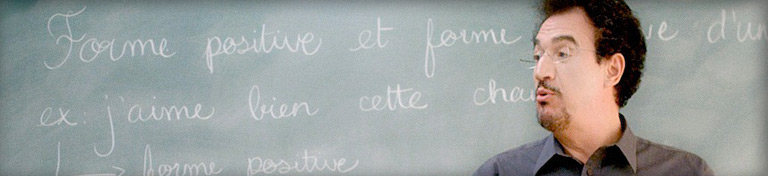 Forme positive et forme d'un
ex: j'aime bien cette
forme positive